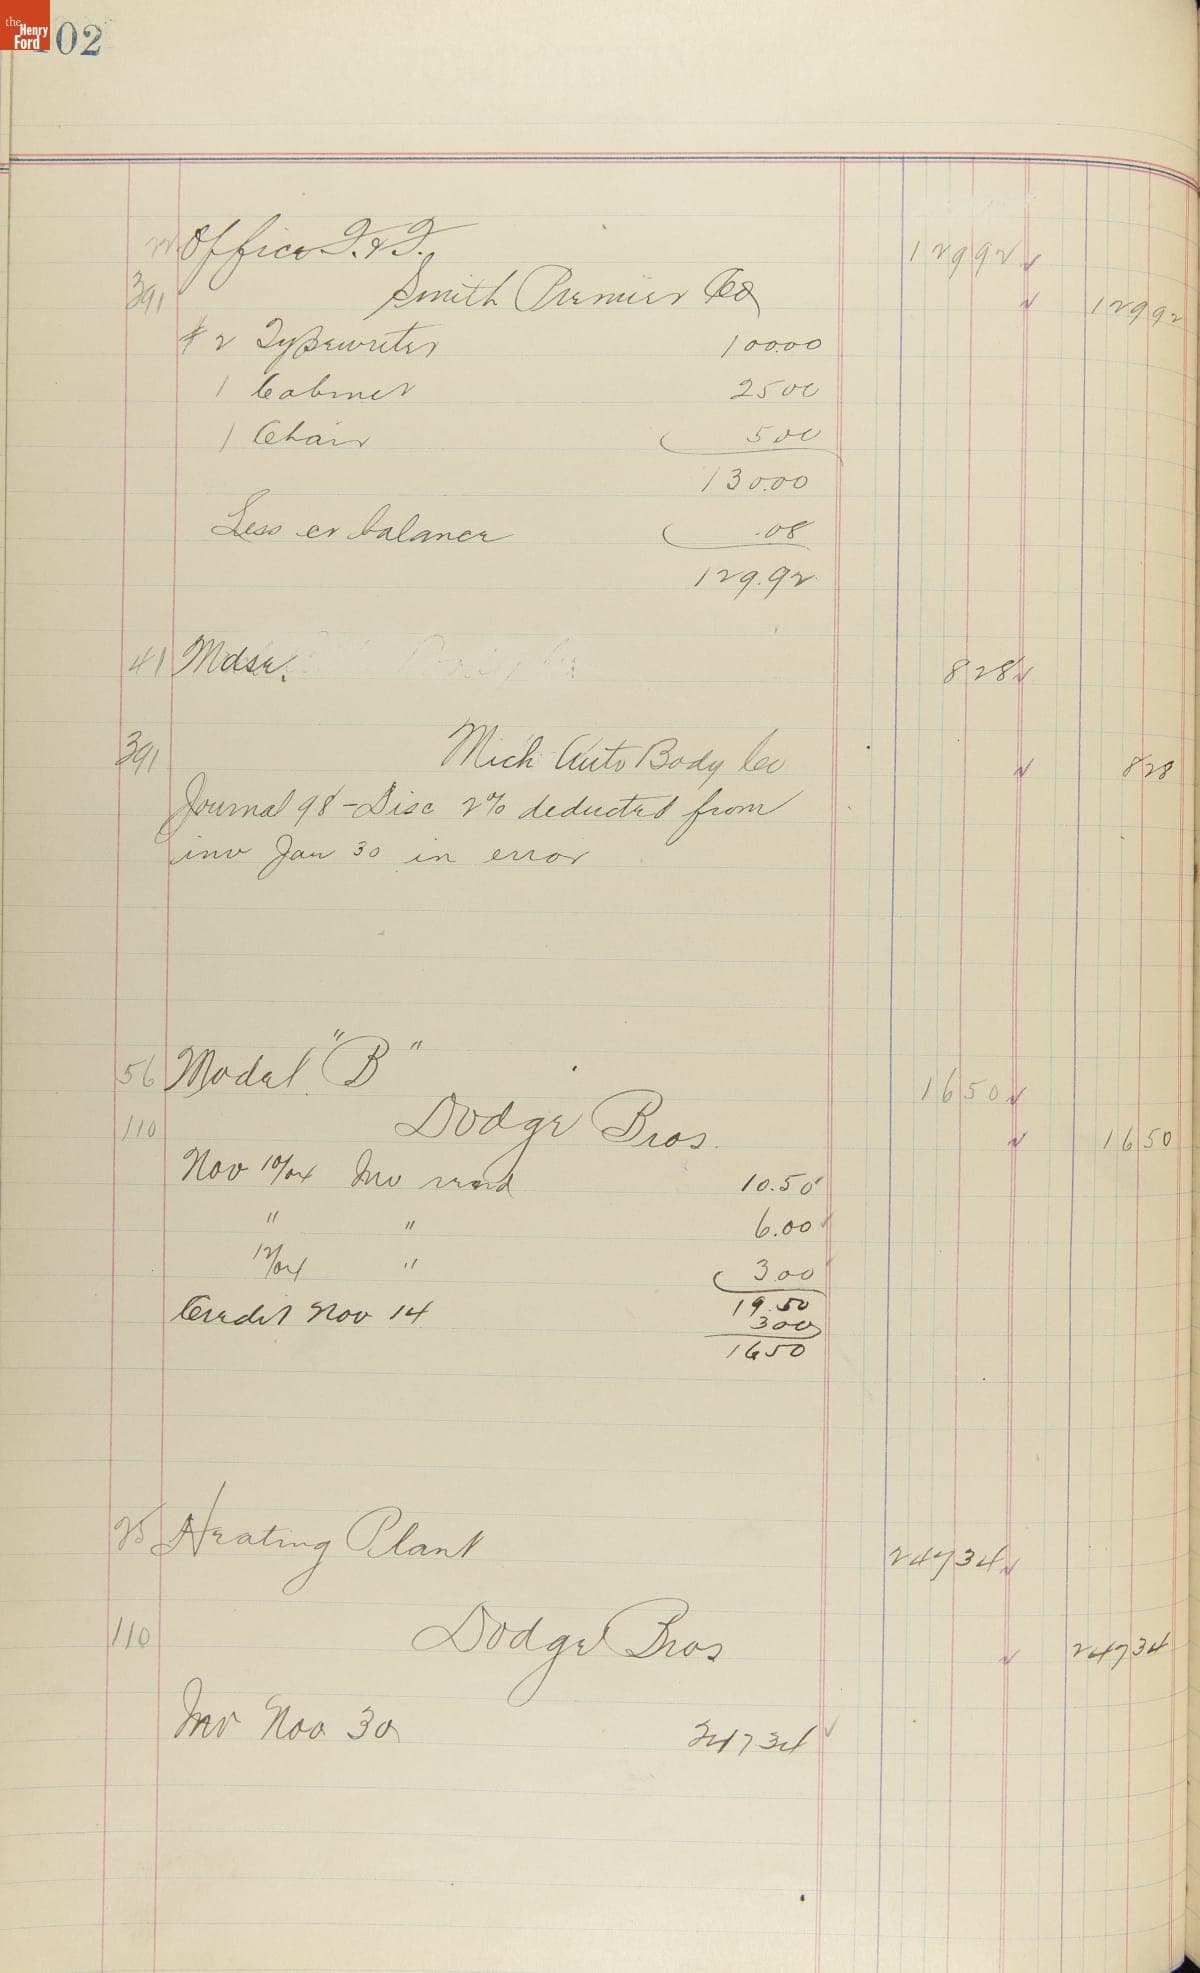 the Henry Ford
02
Office F. & F. 129 92
391 Smith Premier Co 129 92
# 2 Typewriter 100.00
1 Cabinet 25 00
1 Chair 5 00
130.00
Less cr balance .08
129.92
41 Mdse. 8 28
391 Mich Auto Body Co 8 28
Journal 98 - Disc 2% deducted from
inv Jan 30 in error
56 Model "B" 16 50
110 Dodge Bros. 16 50
Nov 10/04 Inv 10.50
" " 6.00
12/04 " 3 00
19.50
Credit Nov 14 3 00
16 50
25 Heating Plant 247 34
110 Dodge Bros 247 34
Inv Nov 30 247 34